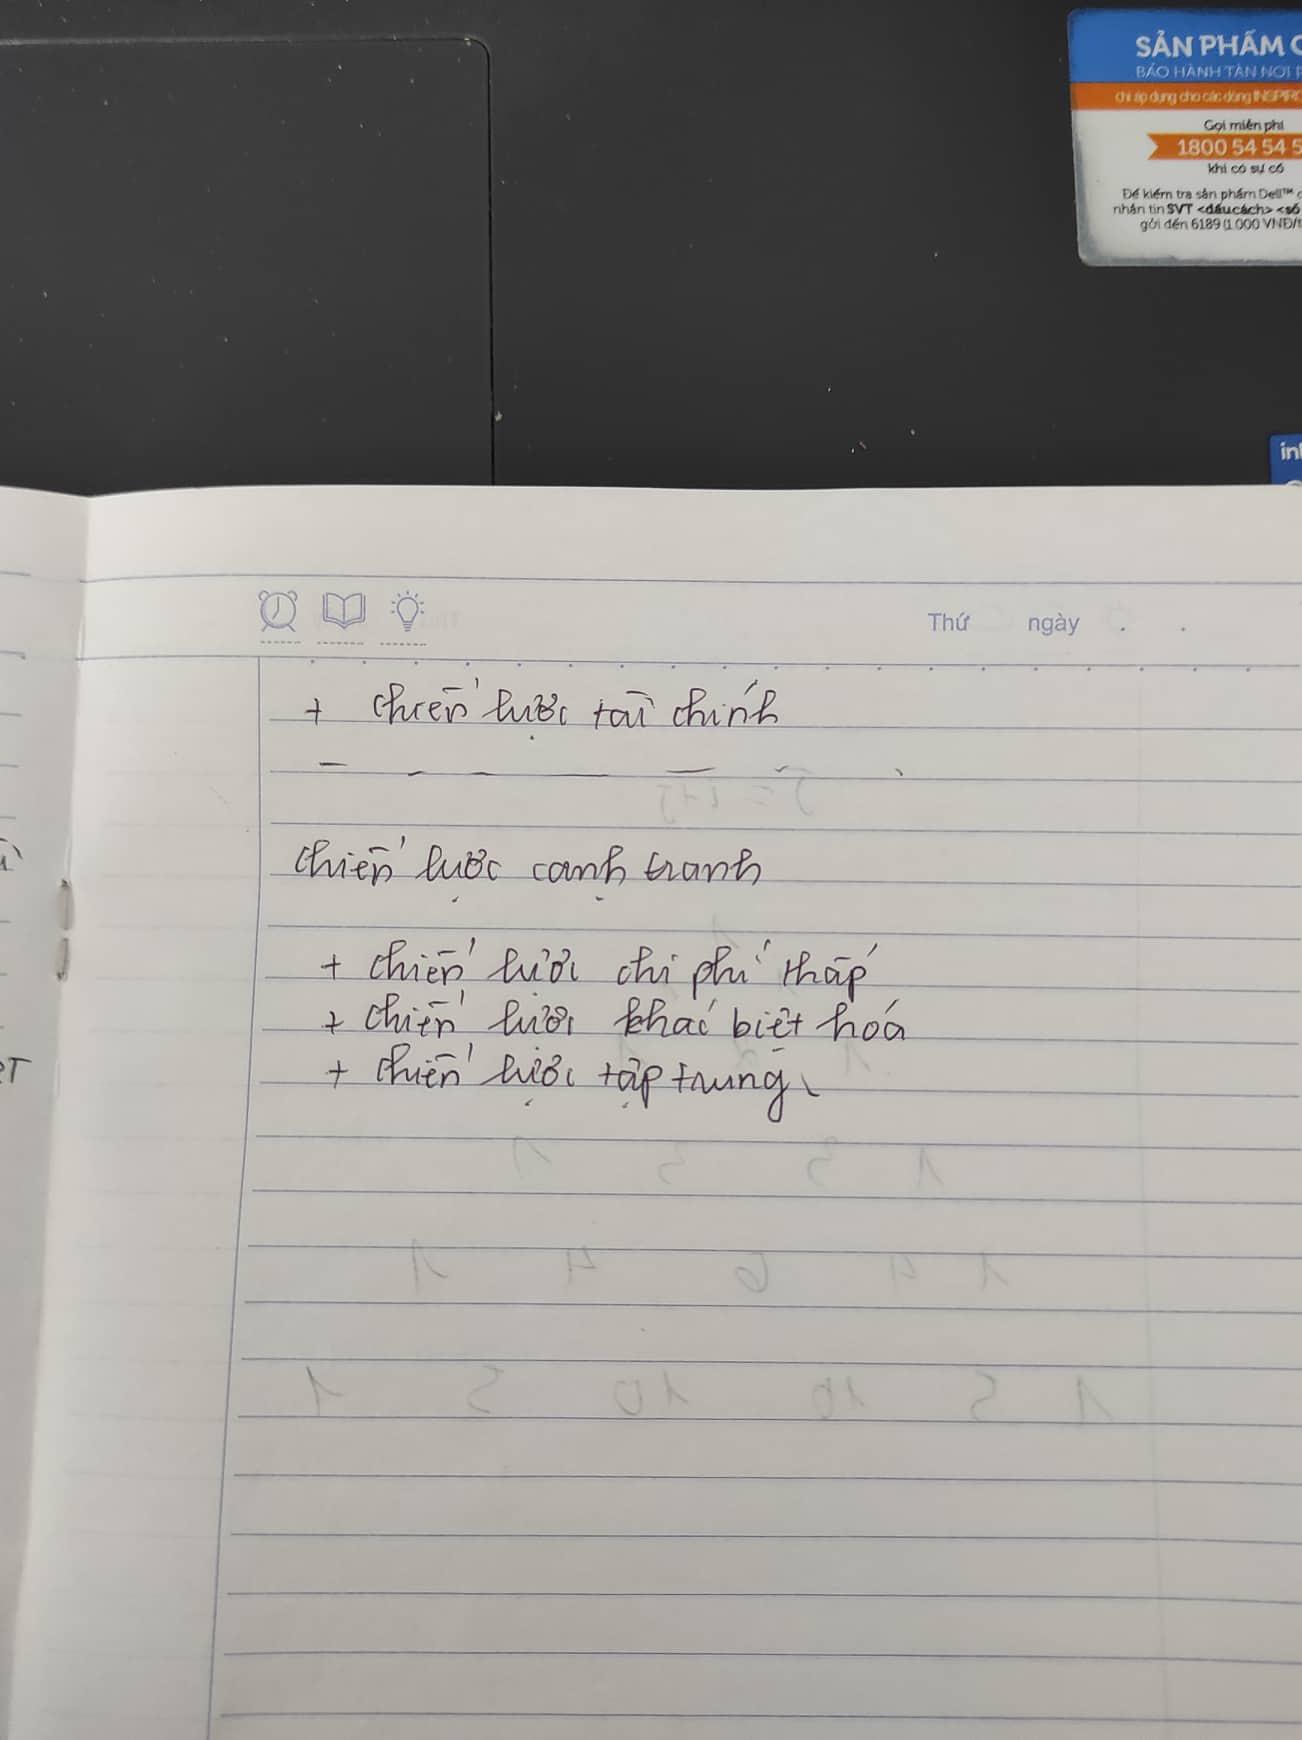 SẢN PHẨM
BẢO HÀNH TẬN NƠI
chỉ áp dụng cho các dòng INSPIRO
Gọi miễn phí
1800 54 54 5
khi có sự cố
Để kiểm tra sản phẩm Dell™
nhắn tin SVT <dấu cách> <số
gởi đến 6189 (1.000 VNĐ/
Thứ ngày . .
+ chiến lược tài chính
chiến lược cạnh tranh
+ chiến lược chi phí thấp
+ chiến lược khác biệt hoá
+ chiến lược tập trung